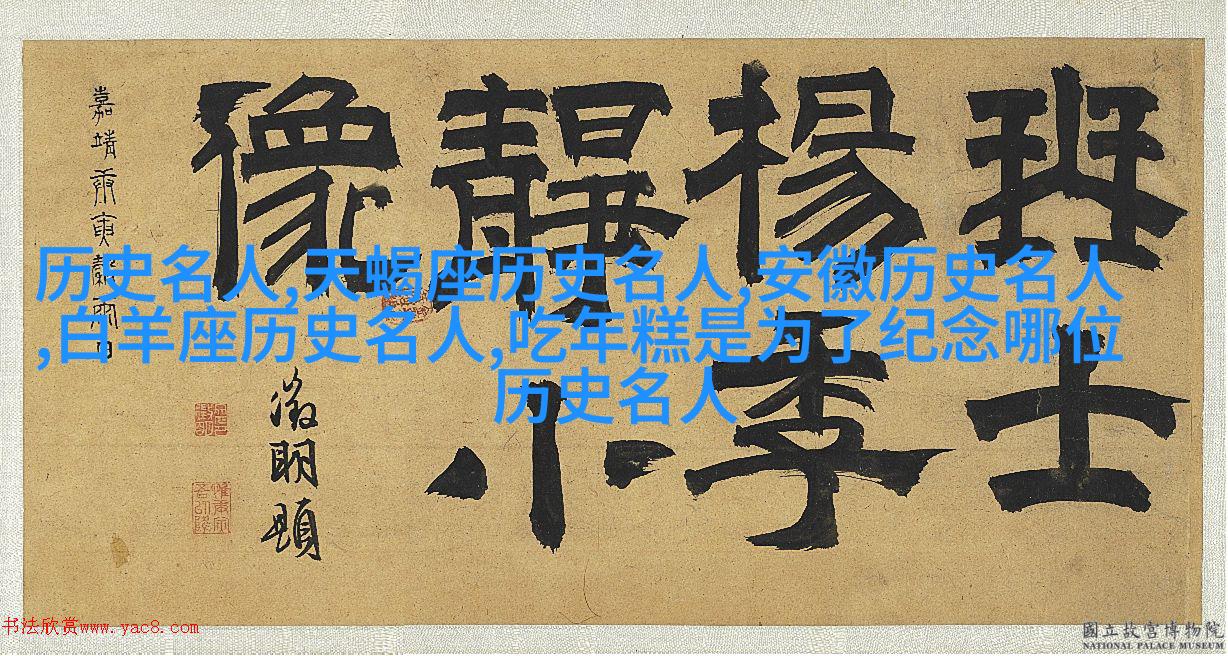 士
楊季
靜小
像
嘉靖庚寅穀雨日
徵明題
历史名人,天蝎座历史名人,安徽历史名人
,白羊座历史名人,吃年糕是为了纪念哪位
历史名人
书法欣赏www.yac8.com
國立故宮博物院
NATIONAL PALACE MUSEUM